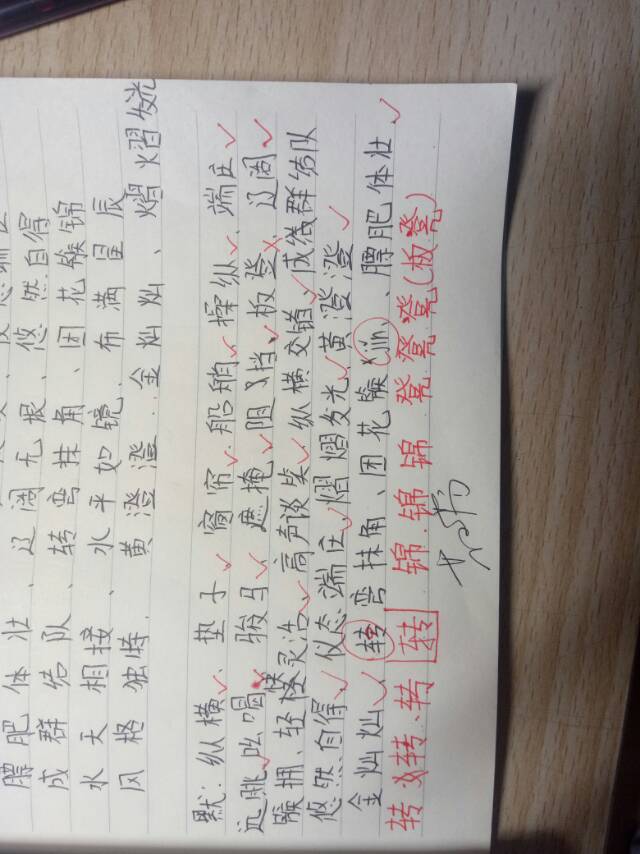 膘肥体壮、辽阔无垠、悠然自得
成群结队、转弯抹角、团花簇锦
水天相接、水平如镜、布满星辰
风格独特、黄澄澄、金灿灿、熠熠发光
默:纵横、垫子、窗帘、船舶、操纵、端庄
远眺、吆喝、骏马、遮掩、阻挡、板登、辽阔
簇拥、轻快灵活、高声谈笑、纵横交错、成群结队
悠然自得、仪态端庄、熠熠发光、黄澄澄
金灿灿、转弯抹角、团花簇jǐn、膘肥体壮
转 转、转 转 锦 锦 锦 凳 凳 凳(板凳)